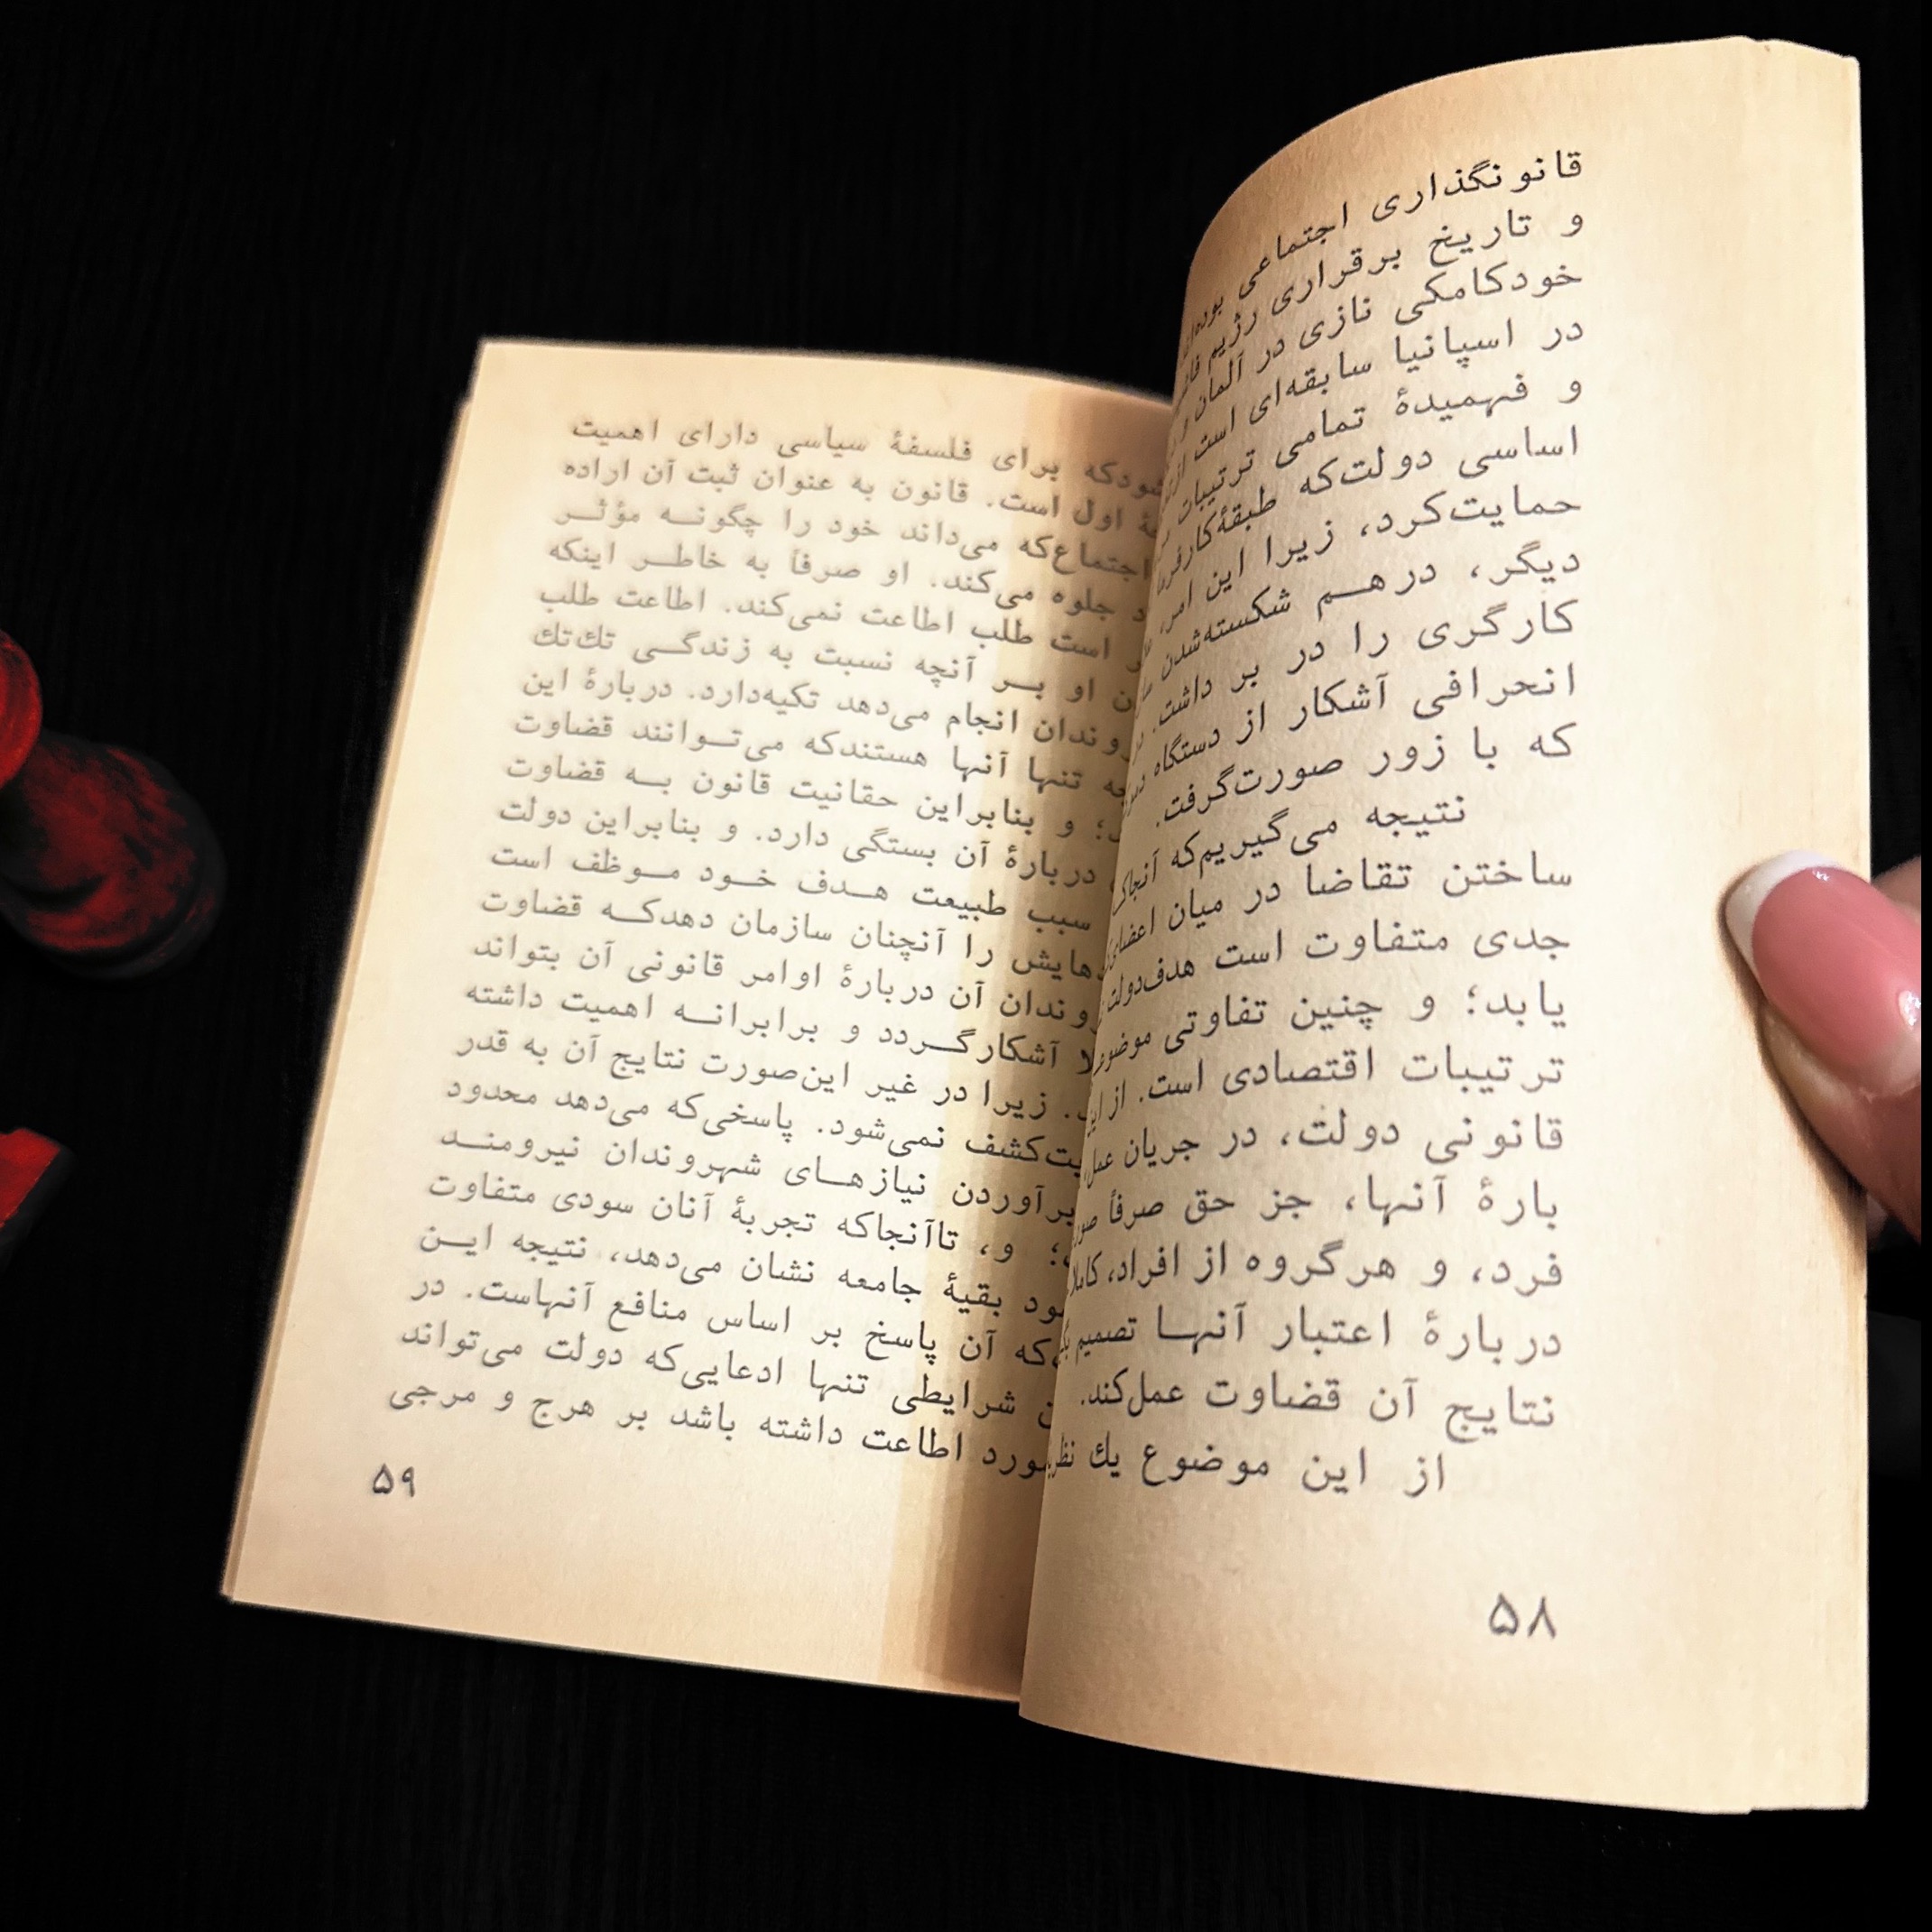 قانونگذاری اجتماعی
و تاریخ برقراری رژیم
خودکامکی نازی در آلمان و
در اسپانیا سابقه‌ای است
و فهمیدهٔ تمامی ترتیبات
اساسی دولت‌که طبقهٔ
حمایت‌کرد، زیرا این امر،
دیگر، درهم شکسته‌شدن
کارگری را در بر داشت.
انحرافی آشکار از دستگاه
که با زور صورت‌گرفت.
نتیجه می‌گیریم‌که
ساختن تقاضا در میان اعضای
جدی متفاوت است هدف‌دولت
یابد؛ و چنین تفاوتی
ترتیبات اقتصادی است. از
قانونی دولت، در جریان
بارهٔ آنها، جز حق صرفاً
فرد، و هرگروه از افراد، کاملا
دربارهٔ اعتبار آنها تصمیم
نتایج آن قضاوت عمل‌کند.
از این موضوع یك
۵۸
برای فلسفهٔ سیاسی دارای اهمیت
اول است. قانون به عنوان ثبت آن اراده
اجتماع‌که می‌داند خود را چگونه مؤثر
جلوه می‌کند. او صرفاً به خاطر اینکه
است طلب اطاعت نمی‌کند. اطاعت طلب
او بر آنچه نسبت به زندگی تك‌تك
انجام می‌دهد تکیه‌دارد. دربارهٔ این
تنها آنها هستندکه می‌توانند قضاوت
و بنابراین حقانیت قانون به قضاوت
دربارهٔ آن بستگی دارد. و بنابراین دولت
سبب طبیعت هدف خود موظف است
را آنچنان سازمان دهدکه قضاوت
آن دربارهٔ اوامر قانونی آن بتواند
آشکارگردد و برابرانه اهمیت داشته
زیرا در غیر این‌صورت نتایج آن به قدر
نمی‌شود. پاسخی‌که می‌دهد محدود
برآوردن نیازهای شهروندان نیرومند
و، تاآنجاکه تجربهٔ آنان سودی متفاوت
بقیهٔ جامعه نشان می‌دهد، نتیجه این
که آن پاسخ بر اساس منافع آنهاست. در
شرایطی تنها ادعایی‌که دولت می‌تواند
اطاعت داشته باشد بر هرج و مرجی
۵۹